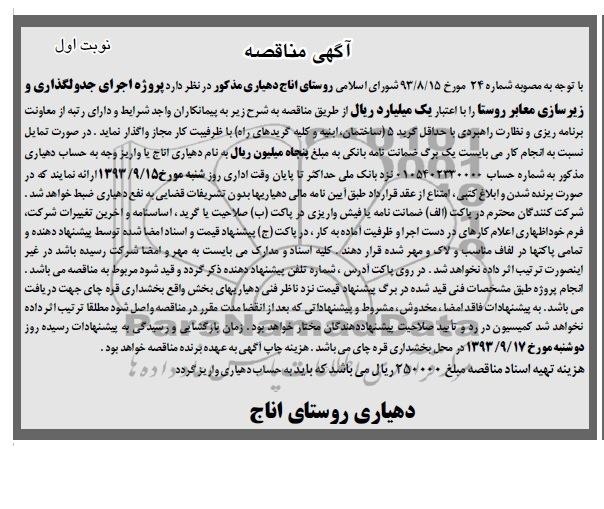 نوبت اول
آگهی مناقصه
با توجه به مصوبه شماره ۲۴ مورخ ۹۳/۸/۱۵ شورای اسلامی روستای اناج دهیاری مذکور در نظر دارد پروژه اجرای جدولگذاری و
زیرسازی معابر روستا را با اعتبار یک میلیارد ریال از طریق مناقصه به شرح زیر به پیمانکاران واجد شرایط و دارای رتبه از معاونت
برنامه ریزی و نظارت راهبردی با حداقل گرید ۵ (ساختمان، ابنیه و کلیه گریدهای راه) با ظرفیت کار مجاز واگذار نماید . در صورت تمایل
نسبت به انجام کار می بایست یک برگ ضمانت نامه بانکی به مبلغ پنجاه میلیون ریال به نام دهیاری اناج یا واریز وجه به حساب دهیاری
مذکور به شماره حساب ۰۱۰۵۴۰۲۳۳۰۰۰۰ نزد بانک ملی حداکثر تا پایان وقت اداری روز شنبه مورخ ۱۳۹۳/۹/۱۵ ارائه نمایند که در
صورت برنده شدن و ابلاغ کتبی ، امتناع از عقد قرارداد طبق آیین نامه مالی دهیاریها بدون تشریفات قضایی به نفع دهیاری ضبط خواهد شد .
شرکت کنندگان محترم در پاکت (الف) ضمانت نامه یا فیش واریزی در پاکت (ب) صلاحیت یا گرید ، اساسنامه و آخرین تغییرات شرکت،
فرم خوداظهاری اعلام کارهای در دست اجرا و ظرفیت آماده به کار ، در پاکت (ج) پیشنهاد قیمت و اسناد امضا شده توسط پیشنهاد دهنده و
تمامی پاکتها در لفاف مناسب و لاک و مهر شده قرار دهند . کلیه اسناد و مدارک می بایست به مهر و امضا شرکت رسیده باشد در غیر
اینصورت ترتیب اثر داده نخواهد شد . در روی پاکت آدرس ، شماره تلفن پیشنهاد دهنده ذکر گردد و قید شود مربوط به مناقصه می باشد .
انجام پروژه طبق مشخصات فنی قید شده در برگ پیشنهاد قیمت نزد ناظر فنی دهیاریهای بخش واقع بخشداری قره چای جهت دریافت
می باشد . به پیشنهادات فاقد امضا ، مخدوش ، مشروط و پیشنهاداتی که بعد از انقضا مدت مقرر در مناقصه واصل شود مطلقا ترتیب اثر داده
نخواهد شد کمیسیون در رد و تأیید صلاحیت پیشنهاددهندگان مختار خواهد بود . زمان بازگشایی و رسیدگی به پیشنهادات رسیده روز
دوشنبه مورخ ۱۳۹۳/۹/۱۷ در محل بخشداری قره چای می باشد . هزینه چاپ آگهی به عهده برنده مناقصه خواهد بود .
هزینه تهیه اسناد مناقصه مبلغ ۲۵۰۰۰۰ ریال می باشد که باید به حساب دهیاری واریز گردد
دهیاری روستای اناج
ParsNamadData